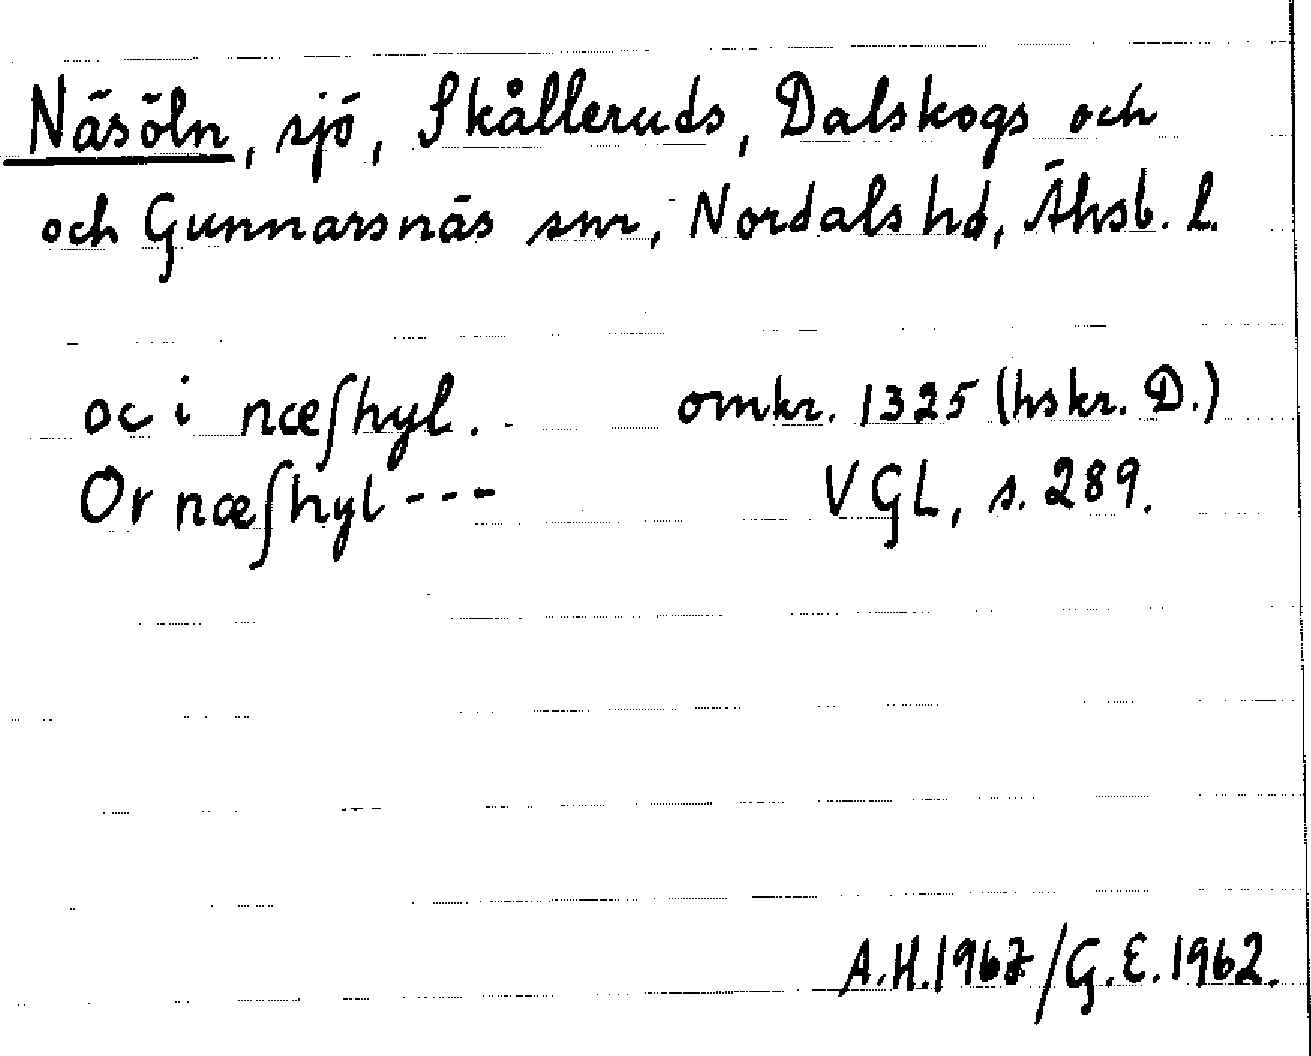 Näsöln, sjö, Skålleruds, Dalskogs och
och Gunnarsnäs snr, Nordals hd, Älvsb. l.
oc i næſhyl. . omkr. 1325 (hskr. D.)
Or næſhyl --- VGL, s. 289.
A.H. /G.E.1962.